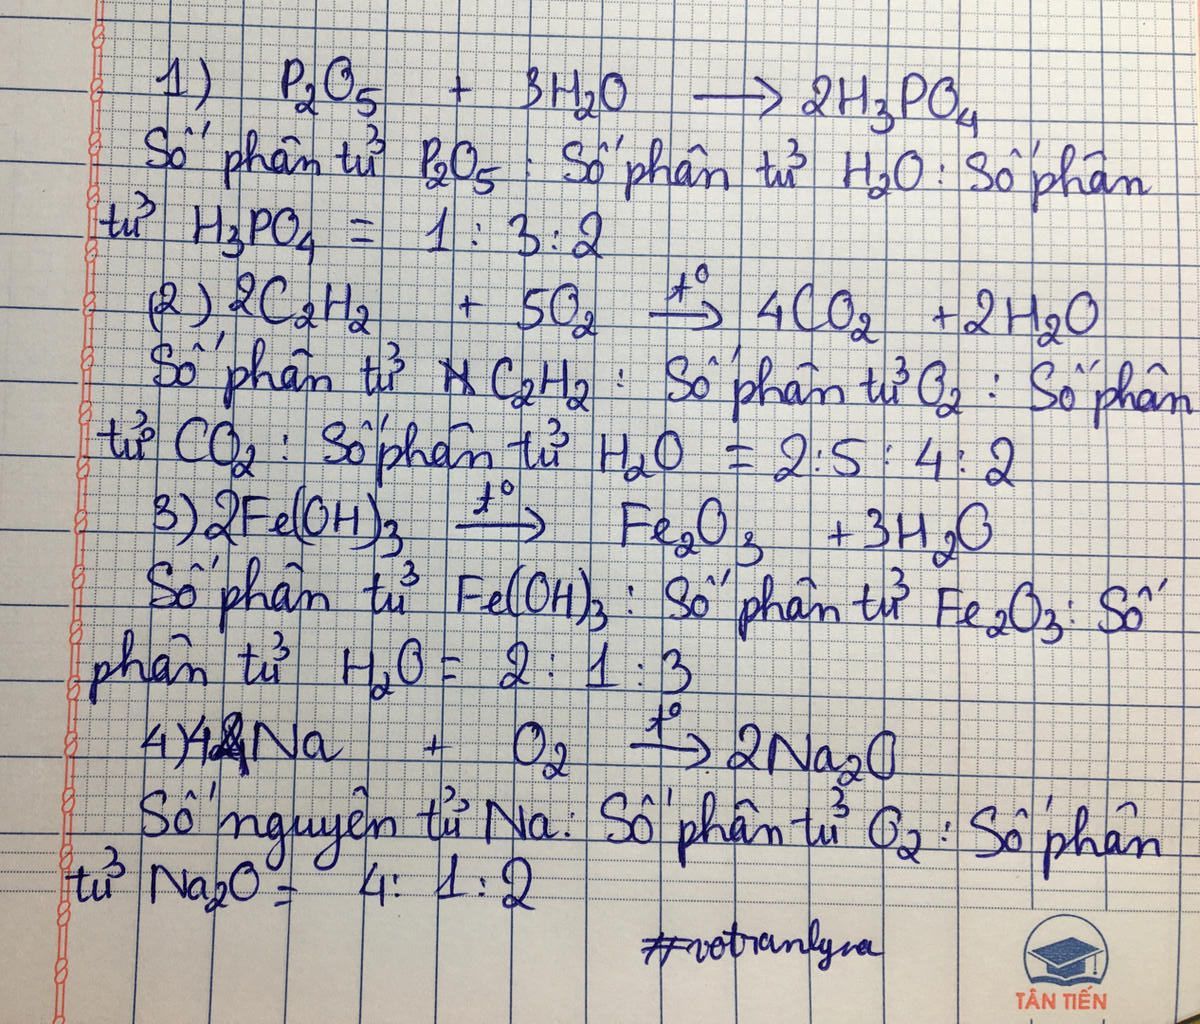 1) P₂O₅ + 3H₂O → 2H₃PO₄
Số phân tử P₂O₅ : Số phân tử H₂O : Số phân
tử H₃PO₄ = 1 : 3 : 2
(2) 2C₂H₂ + 5O₂ →(t⁰) 4CO₂ + 2H₂O
Số phân tử C₂H₂ : Số phân tử O₂ : Số phân
tử CO₂ : Số phân tử H₂O = 2 : 5 : 4 : 2
3) 2Fe(OH)₃ →(t⁰) Fe₂O₃ + 3H₂O
Số phân tử Fe(OH)₃ : Số phân tử Fe₂O₃ : Số
phân tử H₂O = 2 : 1 : 3
4) 4Na + O₂ →(t⁰) 2Na₂O
Số nguyên tử Na : Số phân tử O₂ : Số phân
tử Na₂O = 4 : 1 : 2
#votranlyna
TÂN TIẾN